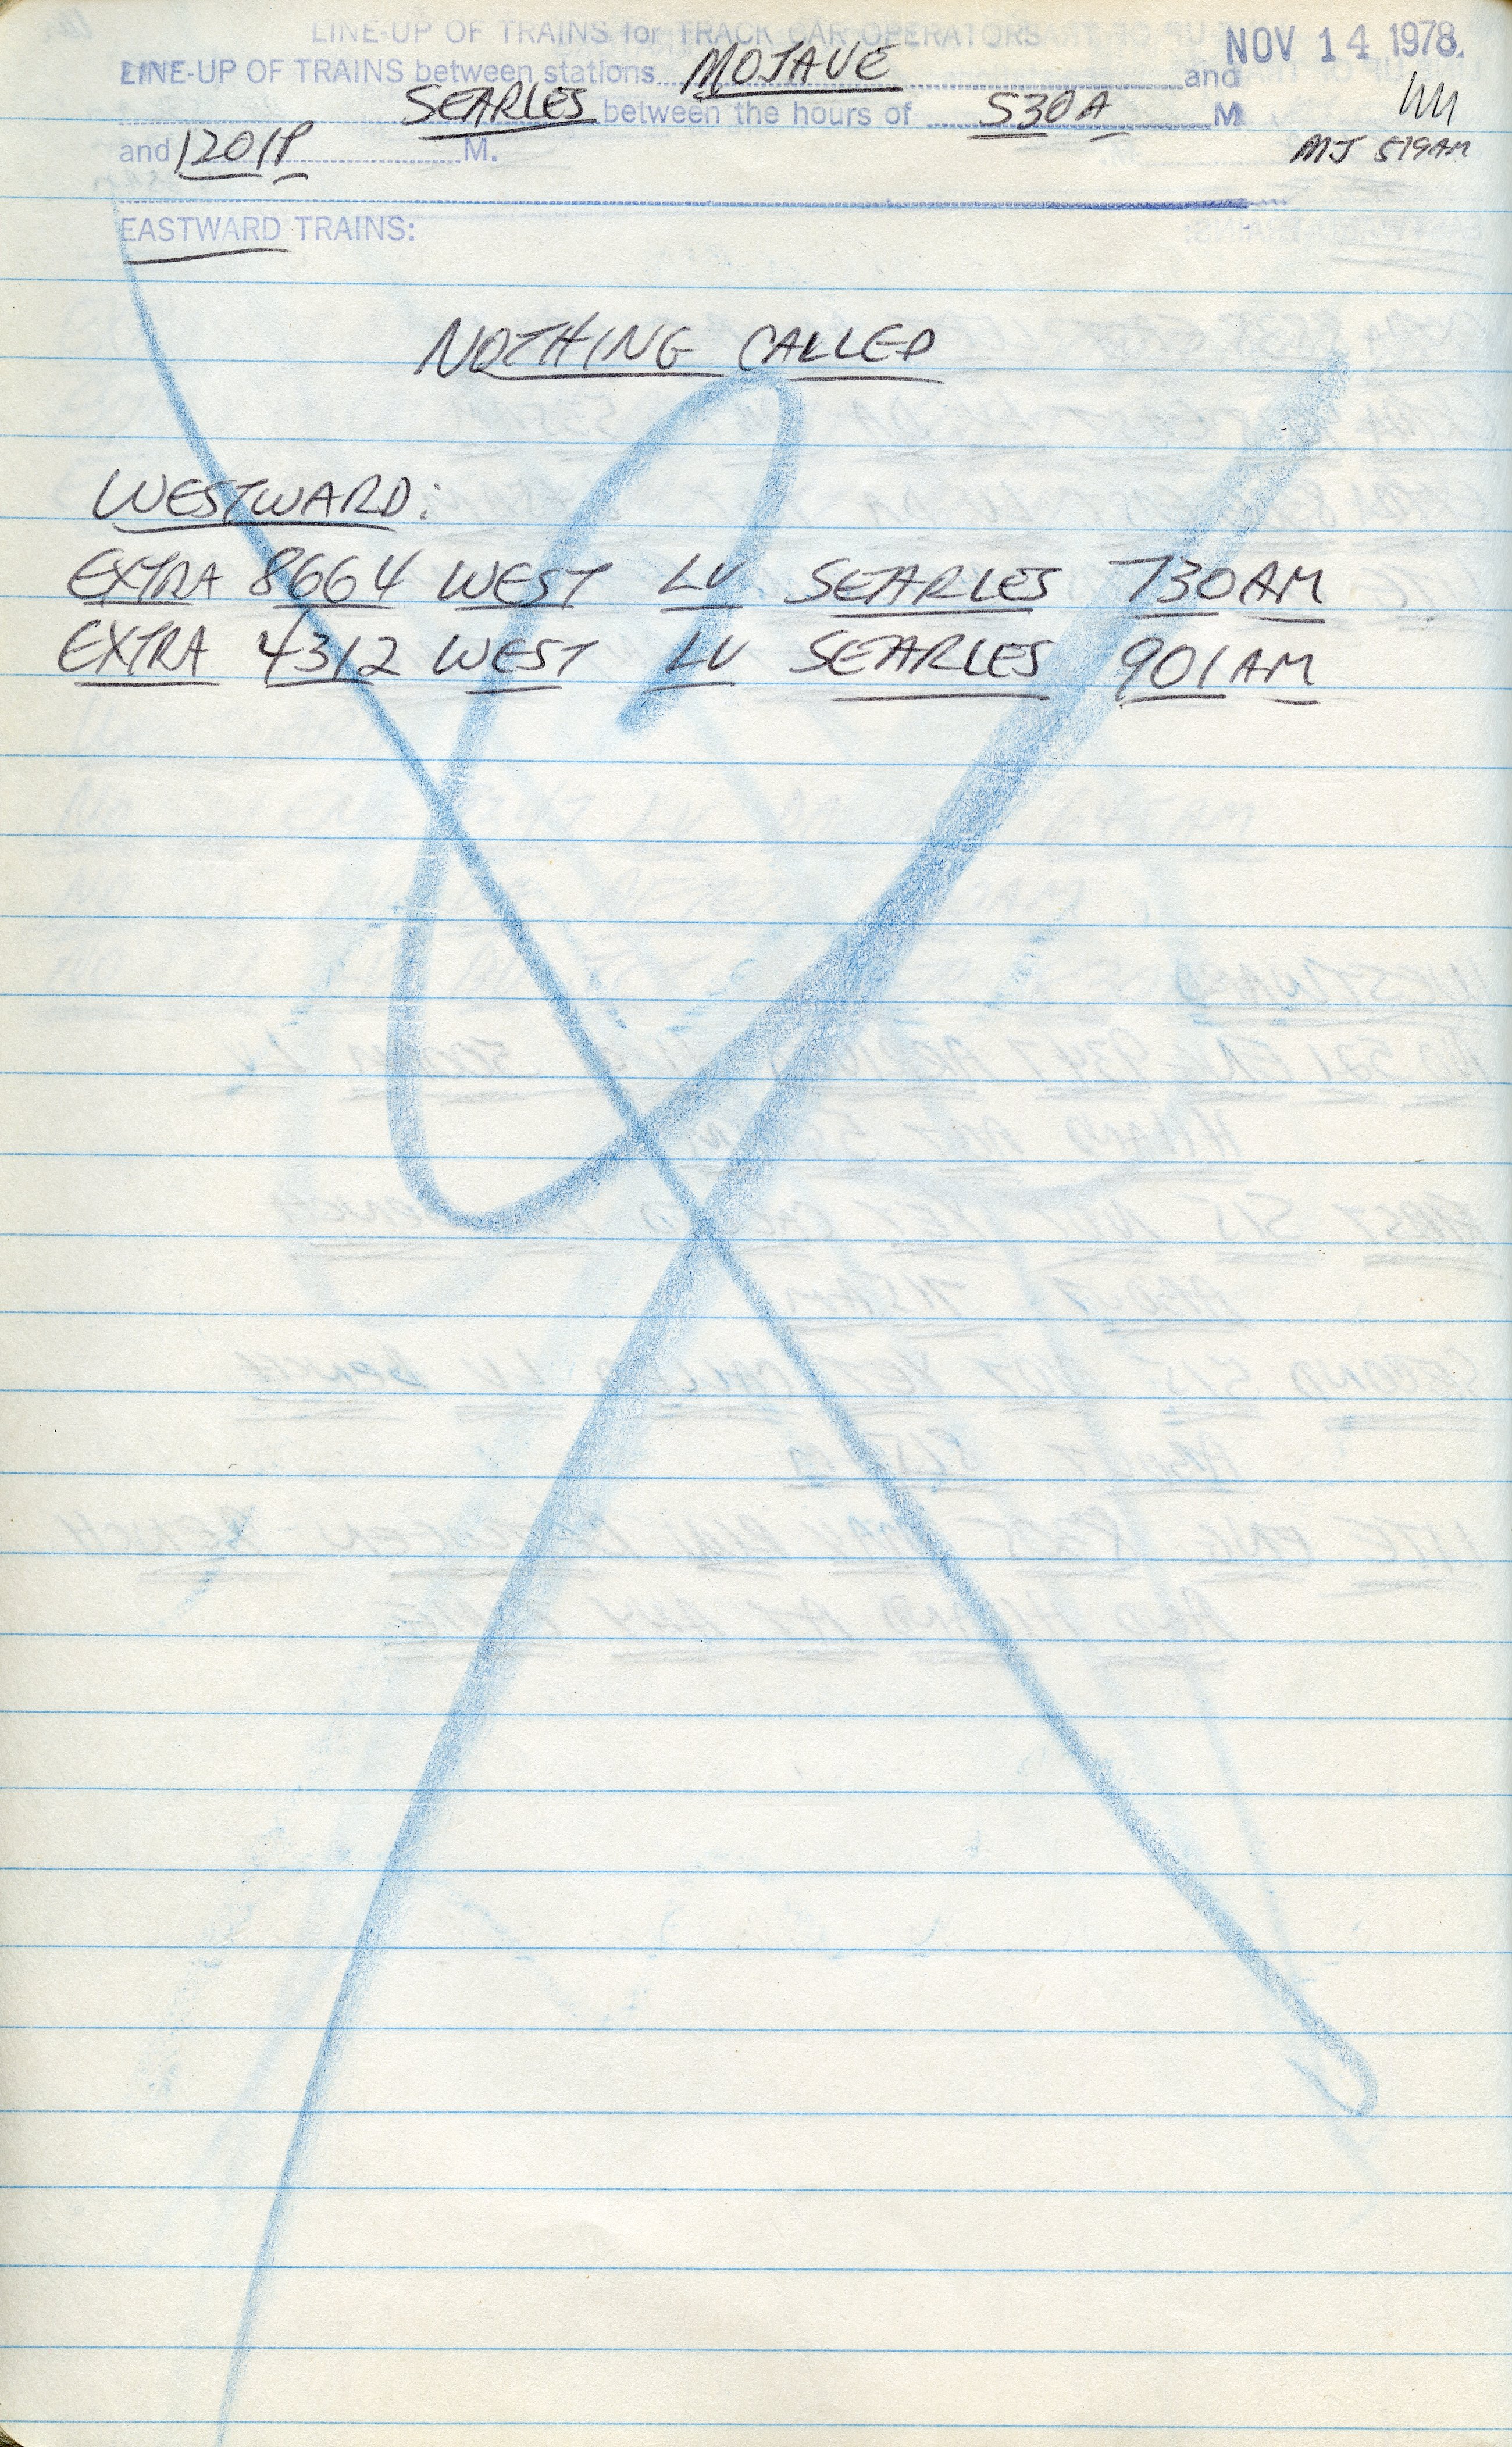 LINE-UP OF TRAINS for TRACK CAR OPERATORS
NOV 14 1978
LINE-UP OF TRAINS between stations MOJAVE and
SEARLES between the hours of 530A M.
and 1201P M.
MJ 519AM
EASTWARD TRAINS:
NOTHING CALLED
WESTWARD:
EXTRA 8664 WEST LV SEARLES 730AM
EXTRA 4312 WEST LV SEARLES 901AM